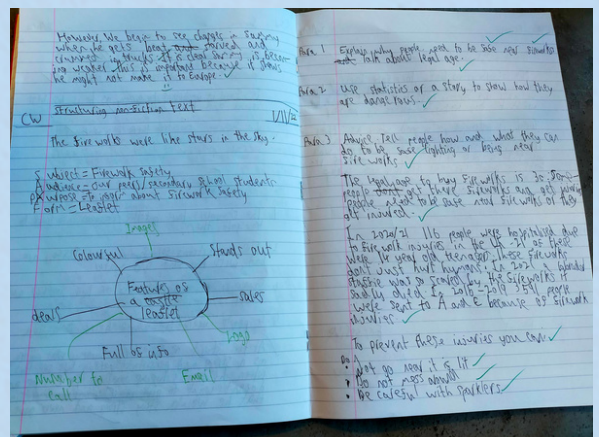 However, we begin to see changes in
when he gets beat starved and
crammed in trucks. It is clear is becom
ing weaker. This is important because it shows
he might not make it to Europe.
CW
Structuring non-fiction text
The Fireworks were like stars in the sky.
Subject = Firework safety
Audience = our peers/secondary school students
Purpose = to inform about firework safety
Form = Leaflet
Images
Colourful
Stands out
Features of
a
leaflet
deals
sales
Logo
Full of info
Number to
Call
Email
Para. 1 Explain why people need to be safe near fireworks
talk about legal age.
Para. 2 Use statistics or a story to show how they
are dangerous.
Para. 3 Advice. Tell people how and what they can
do to be safe lighting or being near
fireworks
The legal age to buy fireworks is Some
people get these fireworks and get
people need to be safe near fireworks or they
get injured.
In 2020/21 116 people were hospitalised due
to firework injuries in the UK. 21 of these
were 14 year old teenagers. These fireworks
dont just hurt humans; in 2021 a
was so scared by the fireworks it
sadly died. In 2018/2019 1,511 people
were sent to A and E because of firework
injuries
To prevent these injuries you can
not go near it is lit
Do not mess about
Be careful with sparklers